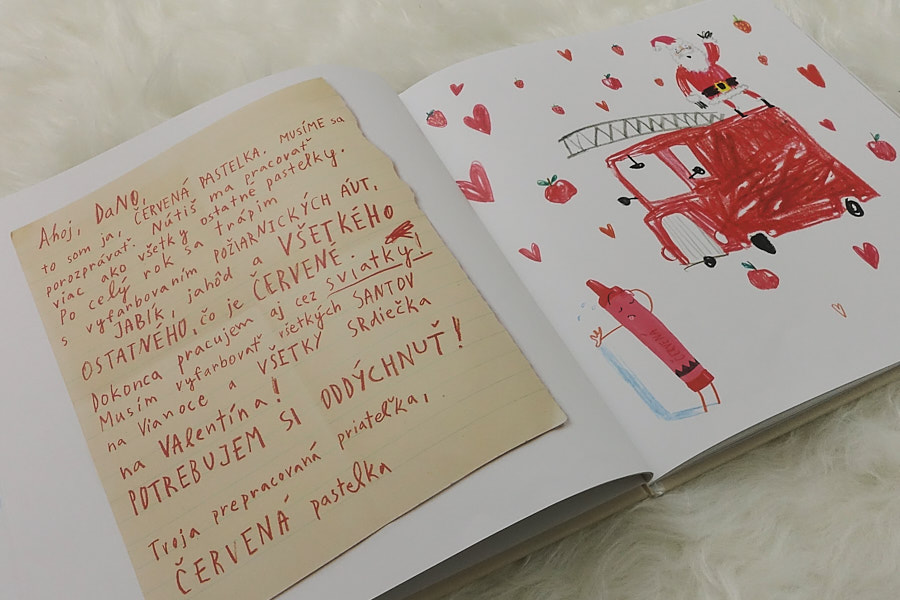 Ahoj, DaNO,
to som ja, ČERVENÁ PASTELKA. MUSÍME sa
porozprávať. Nútiš ma pracovať
viac ako všetky ostatné pastelky.
Po celý rok sa trápim
s vyfarbovaním POŽIARNICKÝCH ÁUT,
JABĺK, jahôd a VŠETKÉHO
OSTATNÉHO, čo je ČERVENÉ.
Dokonca pracujem aj cez sviatky!
Musím vyfarbovať všetkých SANTOV
na Vianoce a VŠETKY SRdiečka
na VALentína!
POTREBUJEM SI ODDÝCHNUŤ!
Tvoja prepracovaná priateľka,
ČERVENÁ pastelka
ČERVENÁ